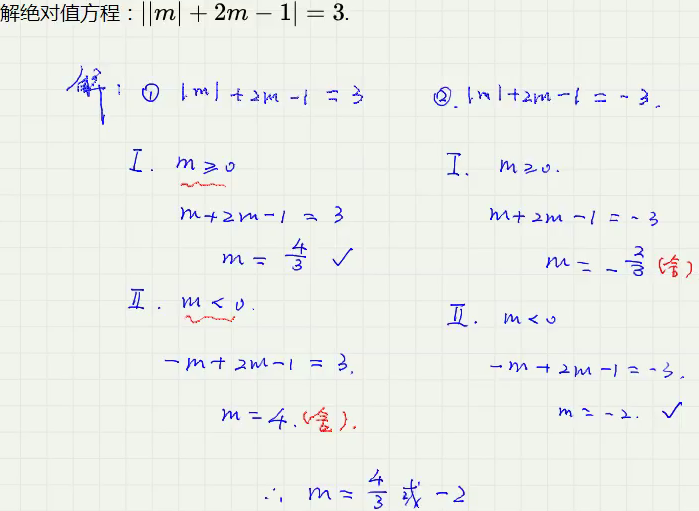 解绝对值方程：||m| + 2m − 1| = 3.
解：① |m| + 2m − 1 = 3
I. m ≥ 0
m + 2m − 1 = 3
m = 4/3 ✓
II. m < 0.
−m + 2m − 1 = 3.
m = 4. (舍).
②. |m| + 2m − 1 = −3.
I. m ≥ 0.
m + 2m − 1 = −3
m = −2/3 (舍)
II. m < 0
−m + 2m − 1 = −3.
m = −2. ✓
∴ m = 4/3 或 −2